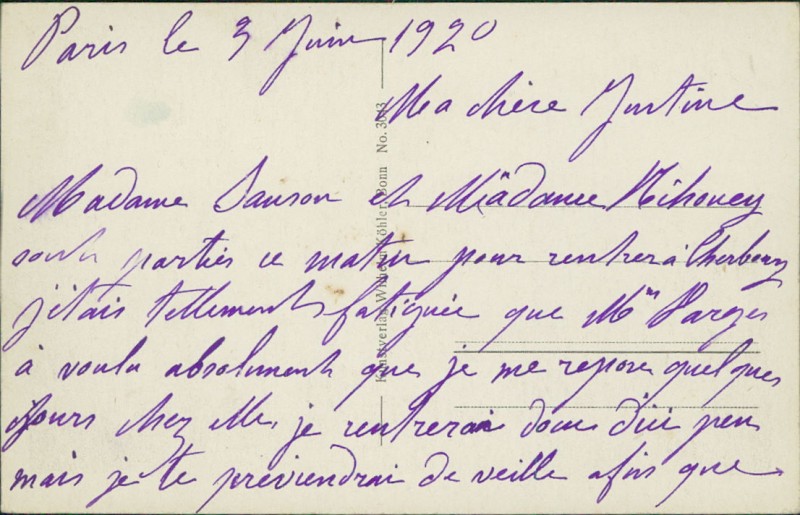 Paris le 3 Juin 1920
Ma chère Justine
Madame Sanson et Madame Mihouey
sont parties ce matin pour rentrer à Cherbourg
j'étais tellement fatiguée que Mm Parges
à voulu absolument que je me repose quelques
Jours chez Elle, je rentrerai donc d'ici peu
mais je te previendrai de veille afin que
Kunstverlag Wilhelm Köhler, Bonn No. 3043